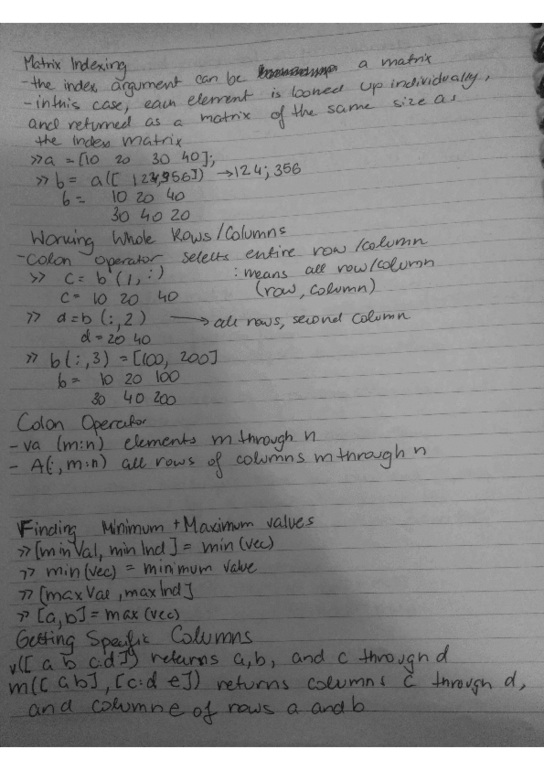 Matrix Indexing
-the index argument can be a matrix
-in this case, each element is looked up individually,
and returned as a matrix of the same size as
the index matrix
>>a = [10 20 30 40];
>> b = a([ 124;356]) →124; 356
b = 10 20 40
30 40 20
Working Whole Rows/Columns
-Colon operator selects entire row/column
>> c = b(1,:) : means all row/column
c = 10 20 40 (row, column)
>> d=b(:,2) → all rows, second column
d = 20 40
>> b(:,3) = [100, 200]
b = 10 20 100
30 40 200
Colon Operator
- va (m:n) elements m through n
- A(:,m:n) all rows of columns m through n
Finding Minimum + Maximum values
>> [minVal, minInd] = min(vec)
>> min(vec) = minimum value
>> [maxVal, maxInd]
>> [a,b] = max(vec)
Getting Specific Columns
v([ a b c:d]) returns a,b, and c through d
m([ab],[c:d e]) returns columns c through d,
and column e of rows a and b